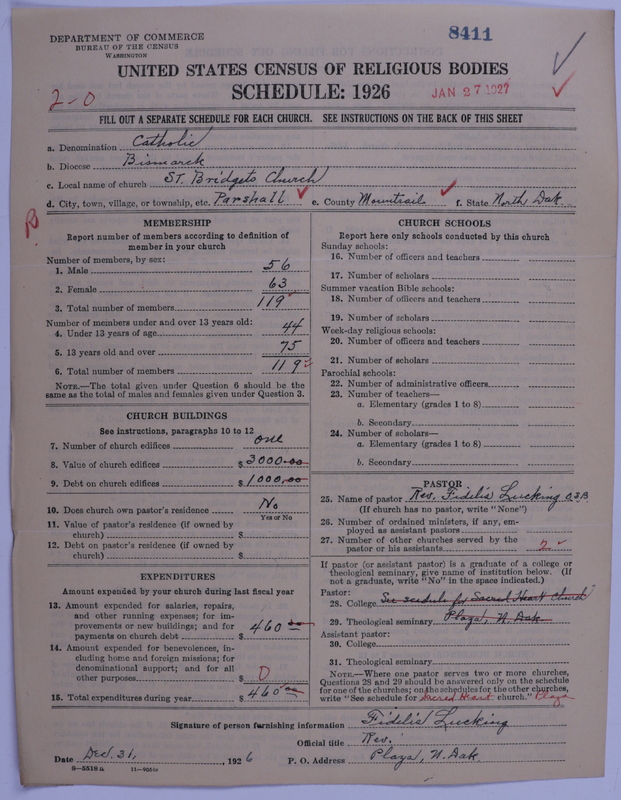 DEPARTMENT OF COMMERCE
BUREAU OF THE CENSUS
WASHINGTON
8411
UNITED STATES CENSUS OF RELIGIOUS BODIES
SCHEDULE: 1926
JAN 27 1927
2-0
FILL OUT A SEPARATE SCHEDULE FOR EACH CHURCH. SEE INSTRUCTIONS ON THE BACK OF THIS SHEET
a. Denomination Catholic
b. Diocese Bismarck
c. Local name of church St. Bridgets Church
d. City, town, village, or township, etc. Parshall e. County Mountrail f. State North Dak.
MEMBERSHIP
Report number of members according to definition of
member in your church
Number of members, by sex:
1. Male 56
2. Female 63
3. Total number of members 119
Number of members under and over 13 years old:
4. Under 13 years of age 44
5. 13 years old and over 75
6. Total number of members 119
NOTE.—The total given under Question 6 should be the
same as the total of males and females given under Question 3.
CHURCH BUILDINGS
See instructions, paragraphs 10 to 12
7. Number of church edifices one
8. Value of church edifices $ 3000.00
9. Debt on church edifices $ 1000.00
10. Does church own pastor's residence No
Yes or No
11. Value of pastor's residence (if owned by
church) $
12. Debt on pastor's residence (if owned by
church) $
EXPENDITURES
Amount expended by your church during last fiscal year
13. Amount expended for salaries, repairs,
and other running expenses; for im-
provements or new buildings; and for
payments on church debt $ 460 00
14. Amount expended for benevolences, in-
cluding home and foreign missions; for
denominational support; and for all
other purposes $ 0
15. Total expenditures during year $ 460 00
CHURCH SCHOOLS
Report here only schools conducted by this church
Sunday schools:
16. Number of officers and teachers
17. Number of scholars
Summer vacation Bible schools:
18. Number of officers and teachers
19. Number of scholars
Week-day religious schools:
20. Number of officers and teachers
21. Number of scholars
Parochial schools:
22. Number of administrative officers
23. Number of teachers—
a. Elementary (grades 1 to 8)
b. Secondary
24. Number of scholars—
a. Elementary (grades 1 to 8)
b. Secondary
PASTOR
25. Name of pastor Rev. Fidelis Lucking O.S.B
(If church has no pastor, write "None")
26. Number of ordained ministers, if any, em-
ployed as assistant pastors
27. Number of other churches served by the
pastor or his assistants 2
If pastor (or assistant pastor) is a graduate of a college or
theological seminary, give name of institution below. (If
not a graduate, write "No" in the space indicated.)
Pastor:
28. College See scedule for Sacred Heart Church
29. Theological seminary Plaza, N. Dak.
Assistant pastor:
30. College
31. Theological seminary
NOTE.—Where one pastor serves two or more churches,
Questions 28 and 29 should be answered only on the schedule
for one of the churches; on the schedules for the other churches,
write "See schedule for Sacred Heart church." Plaza
Signature of person furnishing information Fidelis Lucking
Official title Rev.
Date Dec. 31, 1926 P. O. Address Plaza, N. Dak.
8—5518a